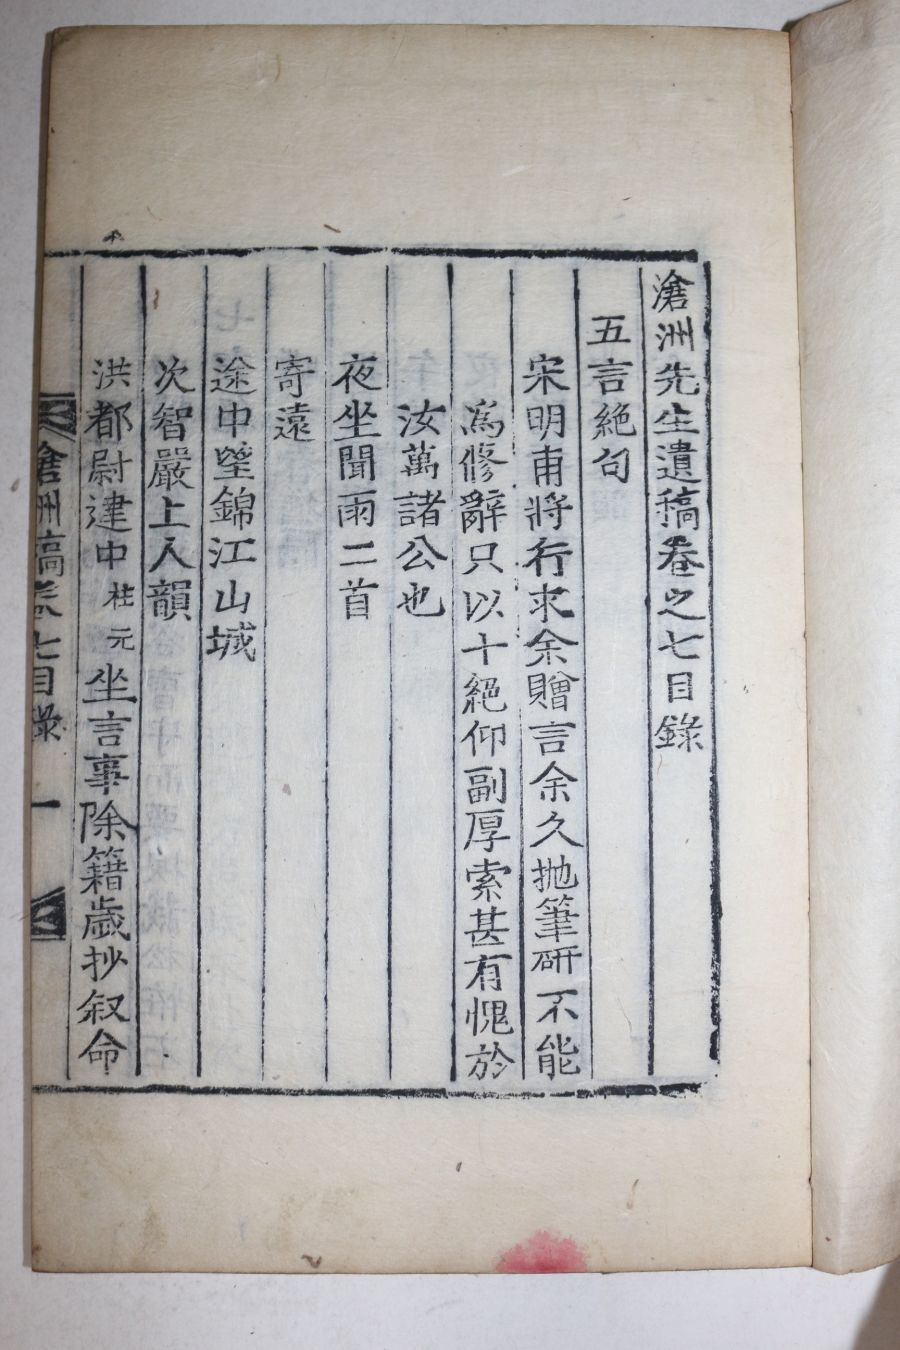 滄洲先生遺稿卷之七目錄
五言絶句
宋明甫將行求余贈言余久抛筆硏不能
爲修辭只以十絕仰副厚索甚有愧於
汝萬諸公也
夜坐聞雨二首
寄遠
途中望錦江山城
次智嚴上人韻
洪都尉建中柱元坐言事除籍歲抄叙命
滄洲稿卷七目錄 一